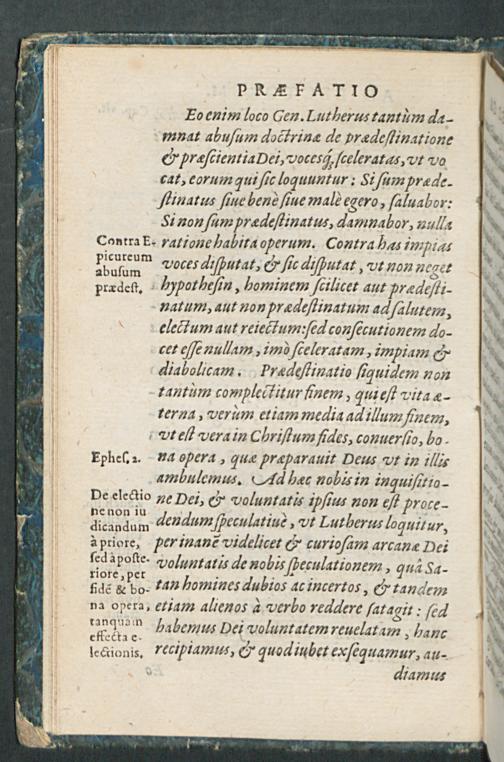 PRÆFATIO
Eo enim loco Gen. Lutherus tantùm da-
mnat abusum doctrinæ de prædestinatione
& præscientia Dei, vocesq́, sceleratas, vt vo
cat, eorum qui sic loquuntur: Si sum præde-
stinatus siue benè siue malè egero, saluabor:
Si non sum prædestinatus, damnabor, nulla
ratione habita operum. Contra has impias
voces disputat, & sic disputat, vt non neget
hypothesin, hominem scilicet aut prædesti-
natum, aut non prædestinatum ad salutem,
electum aut reiectum: sed consecutionem do-
cet esse nullam, imò sceleratam, impiam &
diabolicam. Prædestinatio siquidem non
tantùm complectitur finem, qui est vita æ-
terna, verùm etiam media ad illum finem,
vt est vera in Christum fides, conuersio, bo-
na opera, quæ præparauit Deus vt in illis
ambulemus. Ad hæc nobis in inquisitio-
ne Dei, & voluntatis ipsius non est proce-
dendum speculatiuè, vt Lutherus loquitur,
per inanẽ videlicet & curiosam arcanæ Dei
voluntatis de nobis speculationem, quâ Sa-
tan homines dubios ac incertos, & tandem
etiam alienos à verbo reddere satagit: sed
habemus Dei voluntatem reuelatam, hanc
recipiamus, & quod iubet exsequamur, au-
diamus
Contra E-
picureum
abusum
prædest.
Ephes. 2.
De electio
ne non iu
dicandum
à priore,
sed à poste-
riore, per
fidẽ & bo-
na opera,
tanquàm
effecta e-
lectionis.